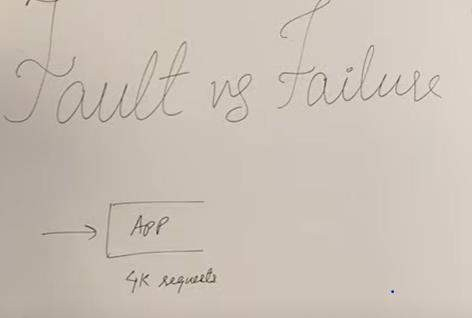 Fault vs Failure
APP
4K requests